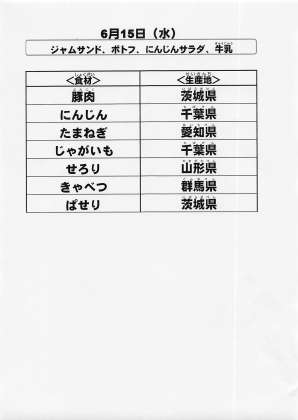 6月15日（水）
ジャムサンド、ポトフ、にんじんサラダ、牛乳
＜食材＞ ＜生産地＞
豚肉 茨城県
にんじん 千葉県
たまねぎ 愛知県
じゃがいも 千葉県
せろり 山形県
きゃべつ 群馬県
ぱせり 茨城県